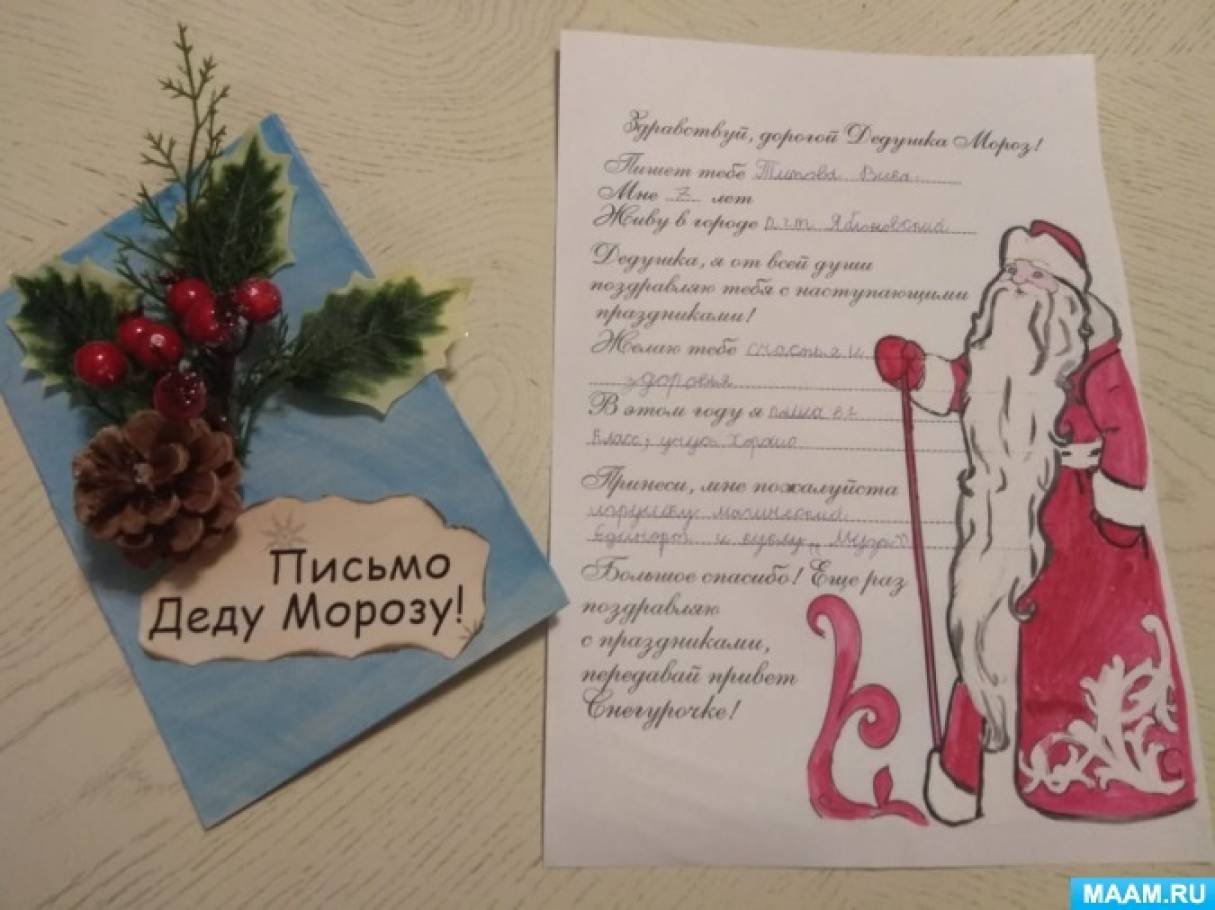 Письмо
Деду Морозу!
Здравствуй, дорогой Дедушка Мороз!
Пишет тебе Титова Вика
Мне 7 лет
Живу в городе п.г.т. Яблоновский
Дедушка, я от всей души
поздравляю тебя с наступающими
праздниками!
Желаю тебе счастья и
здоровья
В этом году я пошла в 1
класс, учусь хорошо
Принеси, мне пожалуйста
игрушку магический
единорог и куклу
Большое спасибо! Еще раз
поздравляю
с праздниками,
передавай привет
Снегурочке!
MAAM.RU